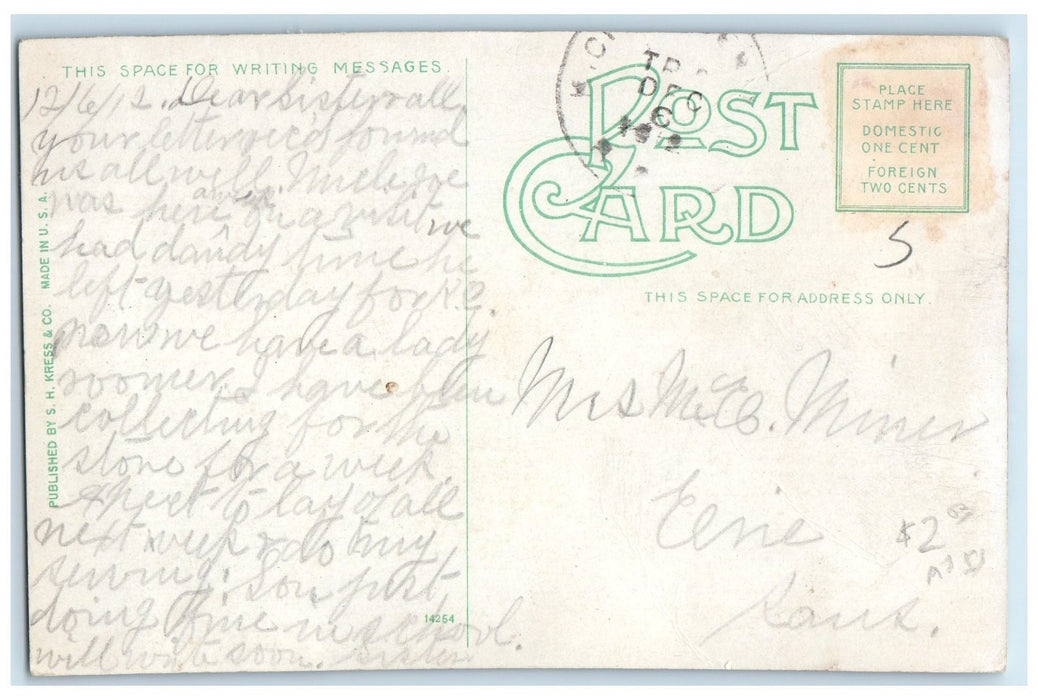 THIS SPACE FOR WRITING MESSAGES.
12/6/12. Dear Sister & all.
your letter rec'd found
us all well. Uncle Joe
was here over on a visit we
had dandy time he
left yesterday for K.C.
now we have a lady
roomer. I have been
collecting for the
store for a week.
expect to lay of all
next week & do my
sewing. Son just
doing fine in school.
will write soon. Sister
PUBLISHED BY S. H. KRESS & CO. MADE IN U. S. A.
14254
POST
CARD
DEC
6
1912
PLACE
STAMP HERE
DOMESTIC
ONE CENT
FOREIGN
TWO CENTS
5
THIS SPACE FOR ADDRESS ONLY.
Mrs Miner
Erie
Kans.
$2